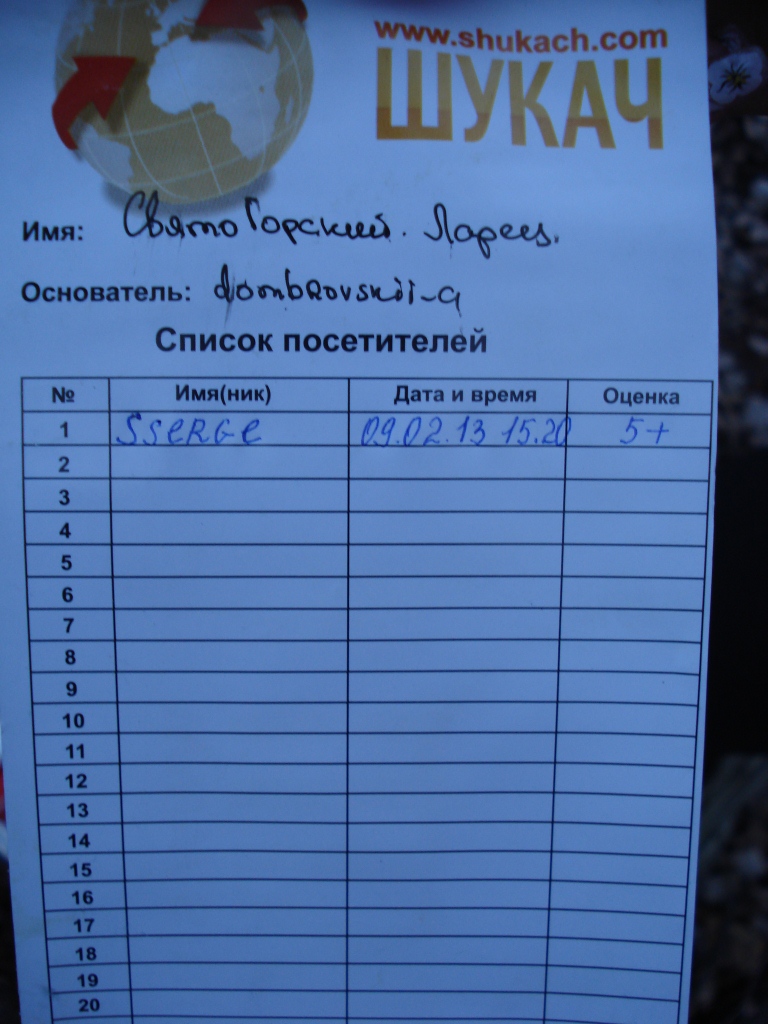 www.shukach.com
ШУКАЧ
Имя: СвятоГорский. Ларец.
Основатель: dombrovskii-a
Список посетителей
№ Имя(ник) Дата и время Оценка
1 SSERGE 09.02.13 15.20 5+
2
3
4
5
6
7
8
9
10
11
12
13
14
15
16
17
18
19
20